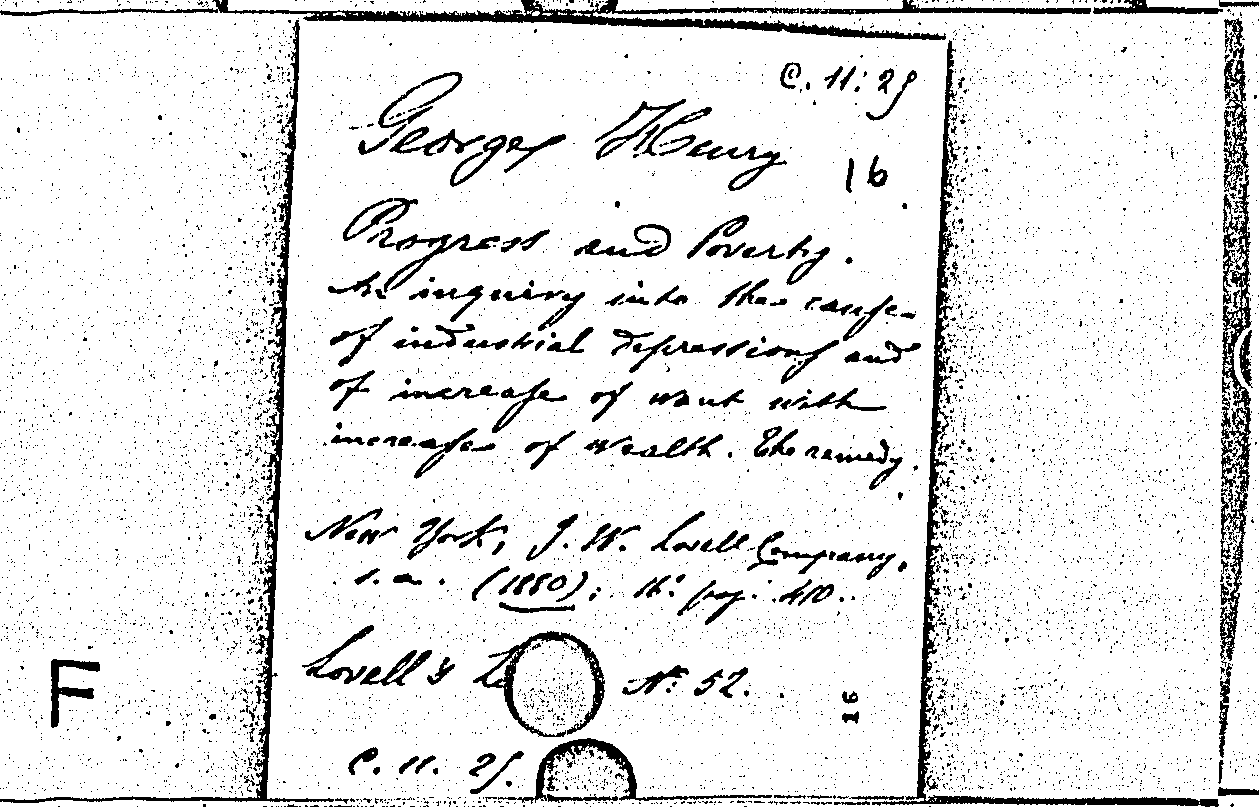 C. 11: 25
George Henry
16
Progress and Poverty.
An inquiry into the cause
of industrial depressions and
of increase of want with
increase of wealth. The remedy.
New York, J. W. Lovell Company,
s. a. (1880); 16° pag. 410.
Lovell's N° 52.
16
C. 11. 25.
F